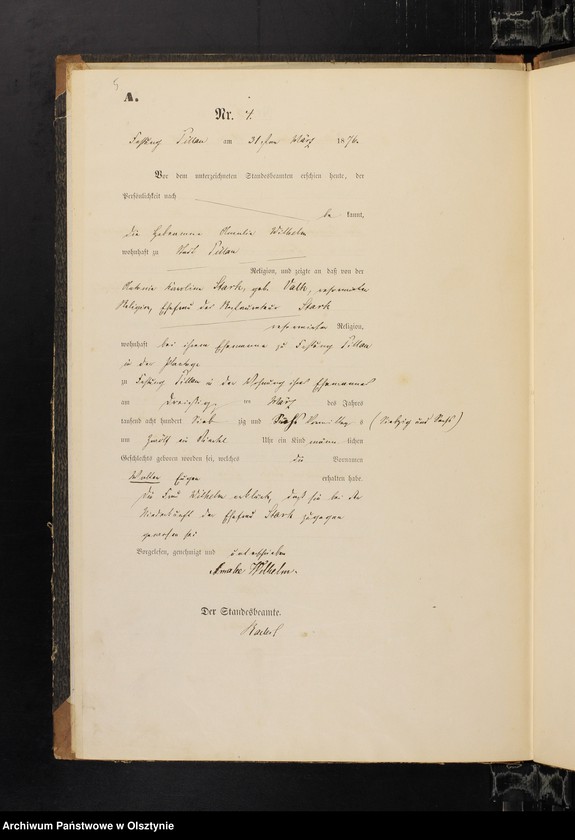 5
A.
Nr. 4.
Festung Pillau am 31sten März 1876.
Vor dem unterzeichneten Standesbeamten erschien heute, der
Persönlichkeit nach
be kannt,
die Hebamme Amalie Wilhelm
wohnhaft zu Stadt Pillau
Religion, und zeigte an daß von der
Karoline Stark, geb. Valk, reformirter
Religion, Ehefrau des Restaurateur Stark
reformirter Religion,
wohnhaft bei ihrem Ehemanne zu Festung Pillau
in der Plantage
zu Festung Pillau in der Wohnung ihres Ehemannes
am dreißig ten März des Jahres
tausend acht hundert Sieb zig und Sechs Vormittag s (Siebzig und Sechs)
um zwölf ein Viertel Uhr ein Kind männ lichen
Geschlechts geboren worden sei, welches die Vornamen
Walter Eugen erhalten habe.
Die Frau Wilhelm erklärt, daß sie bei der
Niederkunft der Ehefrau Stark zugegen
gewesen sei
Vorgelesen, genehmigt und unterschrieben
Amalie Wilhelm.
Der Standesbeamte.
Archiwum Państwowe w Olsztynie